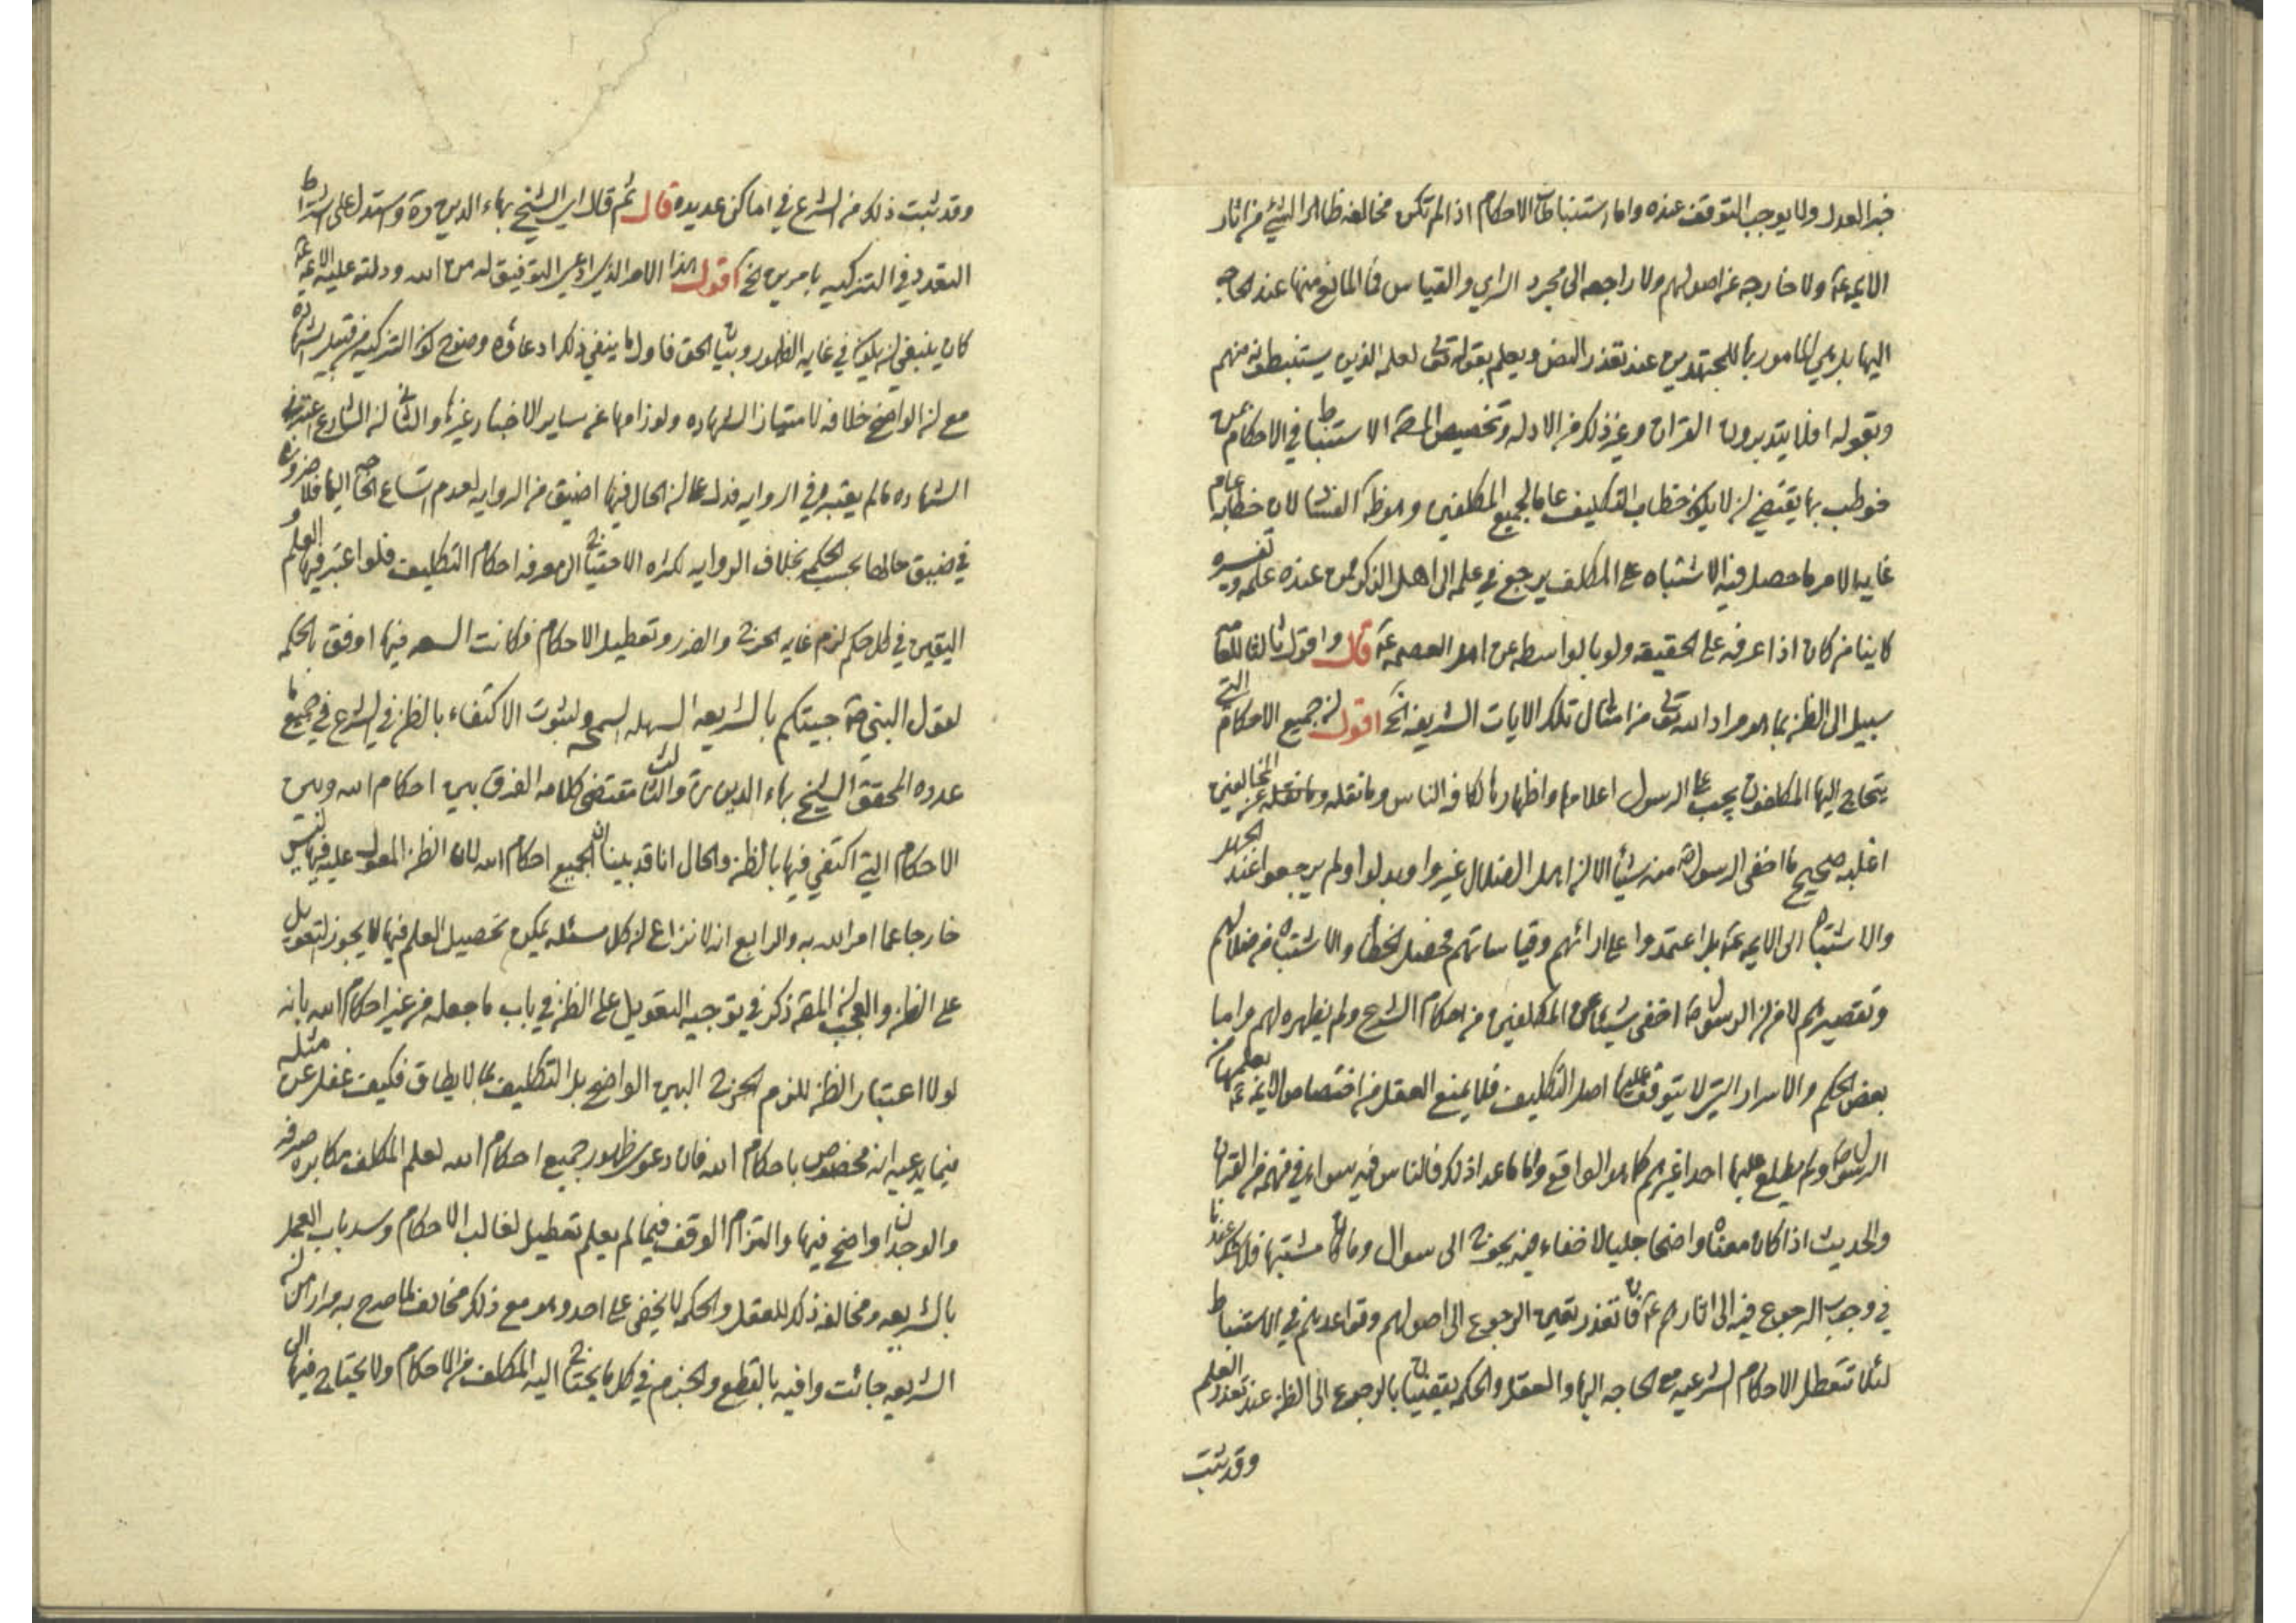 خبر العدل ولا يوجب التوقف عنده واما استنباطات الاحكام اذا لم تكن مخالفه ظاهر الشيء من اثار
الايمه ع ولا خارجه عن اصولهم ولا راجعه الى مجرد الراي والقياس فما المانع منها عند الحاجه
اليها بل هي المامور بها للمجتهدين عند تعذر النص ويعلم بقوله تعالى لعلمه الذين يستنبطونه منهم
وبقوله افلا يتدبرون القران وغير ذلك من الادله وتخصيص المص الاستنباط في الاحكام بمن
خوطب بها يقتضي ان لا يكون خطاب التكليف عاما لجميع المكلفين وهو ظ الفساد لان خطابه عام
غايه الامر ما حصل فيه الاشتباه على المكلف يرجع في علمه الى اهل الذكر ممن عنده علمه وتفسيره
كاينا من كان اذا عرفه على الحقيقه ولو بالواسطه عن اهل العصمه ع قال واقول ثالثا
سبيل الى الظن بما هو مراد الله تعالى من امثال تلك الايات الشريفه الخ اقول ان جميع الاحكام التي
يحتاج اليها المكلفون يجب على الرسول اعلامها واظهارها لكافه الناس وما نقله وما نقله عن المخالفين
اغلبه صحيح ما اخفى الرسول ص منه شيأ الا ان اهل الضلال غيروا وبدلوا ولم يرجعوا عند الجهل
والاشتباه الى الايمه ع بل اعتمدوا على ارائهم وقياساتهم فحصل الخطا والاشتباه من ضلالهم
وتقصيرهم لا من ان الرسول ص اخفى شيئا عن المكلفين من احكام الشرع ولم يظهره لهم واما
بعض الحكم والاسرار التي لا يتوقف عليها اصل التكليف فلا يمنع العقل من اختصاص الايمه ع بعلمها من
الرسول ص ولم يطلع عليها احدا غيرهم كما هو الواقع واما ما عدا ذلك فالناس فيه سواء في فهمه من القران
والحديث اذا كان معناه واضحا جليا لا خفاء فيه يحوج الى سوال وما كان مشتبها فلا شك عندنا
في وجوب الرجوع فيه الى اثارهم ع فان تعذر تعين الرجوع الى اصولهم وقواعدهم في الاستنباط
لئلا تتعطل الاحكام الشرعيه مع الحاجه اليها والعقل والحكمه يقضيان بالرجوع الى الظن عند تعذر العلم
وقد ثبت
وقد ثبت ذلك من الشرع في اماكن عديده قال ثم قال اي الشيخ بهاء الدين ره واستدل على اشتراط
التعدد في التزكيه بامرين الخ اقول هذا الامر الذي ادعى التوفيق له من الله ودلته عليه الايمه ع
كان ينبغي ان يكون في غايه الظهور وبيان الحق فاول ما ينفي ذلك ادعاؤه وضوح كون التزكيه من قبيل الشهاده
مع ان الواضح خلافه لامتياز الشهاده ولوازمها عن ساير الاخبار وغيرها والثاني ان الشارع اعتبر في
الشهاده ما لم يعتبره في الروايه فدل على ان الحال فيها اضيق من الروايه لعدم اتساع الحاجه اليها فلا ضروره
في ضيق حالها بحسب الحكمه بخلاف الروايه لكثره الاحتياج الى معرفه احكام التكليف فلو اعتبر فيها العلم و
اليقين في كل حكم لزم غايه الحرج والضرر وتعطيل الاحكام فكانت السعه فيها اوفق بالحكمه
لقول النبي ص جيتكم بالشريعه السهله السمحه ولثبوت الاكتفاء بالظن في الشرع في جميع ما
عدده المحقق الشيخ بهاء الدين ره والثالث مقتضى كلامه الفرق بين احكام الله وبين
الاحكام التي اكتفي فيها بالظن والحال انا قد بينا ان الجميع احكام الله لان الظن المعول عليه فيها ليس
خارجا عما امر الله به والرابع انه لا نزاع ان كل مسئله يمكن تحصيل العلم فيها لا يجوز التعويل
على الظن والعجب ان المص ذكر في توجيه التعويل على الظن في باب ما جعله من غير احكام الله بانه
لولا اعتبار الظن للزم الحرج البين الواضح بل التكليف بما لا يطاق فكيف غفل عن مثله
فيما يدعيه انه مخصوص باحكام الله فان دعوى ظهور جميع احكام الله لعلم المكلف مكابره صرفه
والوجدان واضح فيها والتزام الوقف فيما لم يعلم تعطيل لغالب الاحكام وسد باب العمل
بالشريعه ومخالفه ذلك للعقل والحكمه لا يخفى على احد وهو مع ذلك مخالف لما صرح به مرارا من ان
الشريعه جائت وافيه بالقطع والجزم في كل ما يحتاج اليه المكلف من الاحكام ولا يحتاج فيها الى